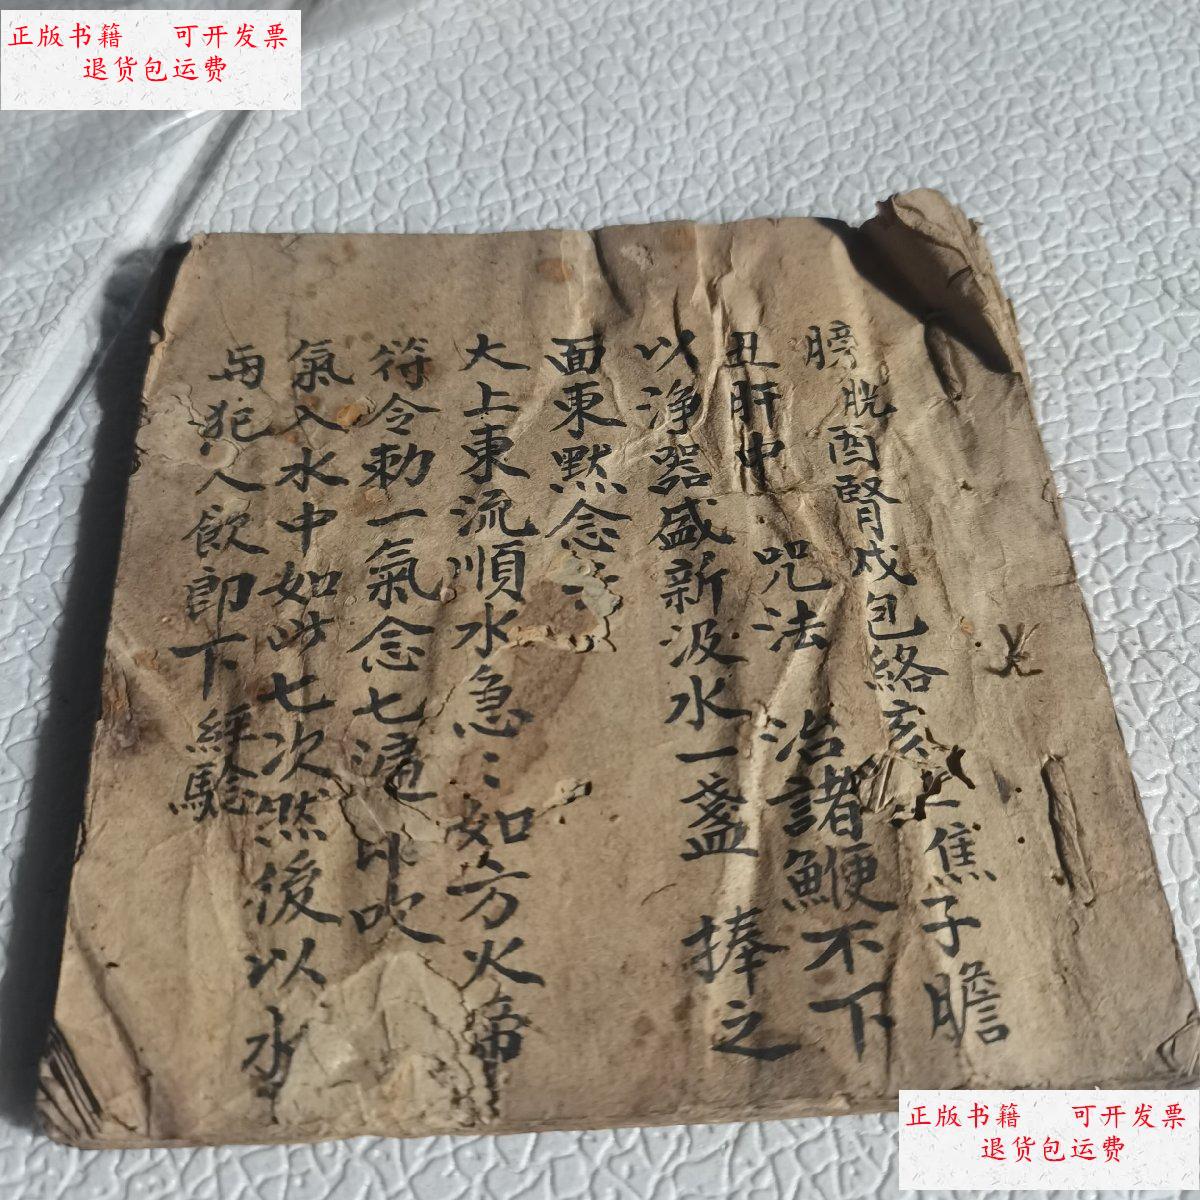 正版书籍 可开发票
退货包运费
膀胱酉腎戌包絡亥三焦子膽
丑肝中 咒法 治諸鯁不下
以净器盛新汲水一盞 捧之
面東默念云
大上東流順水急:如方火帝
符令勅一氣念七遍 吹
氣入水中如此七次然後以水
与犯人飲即下 經驗
正版书籍 可开发票
退货包运费